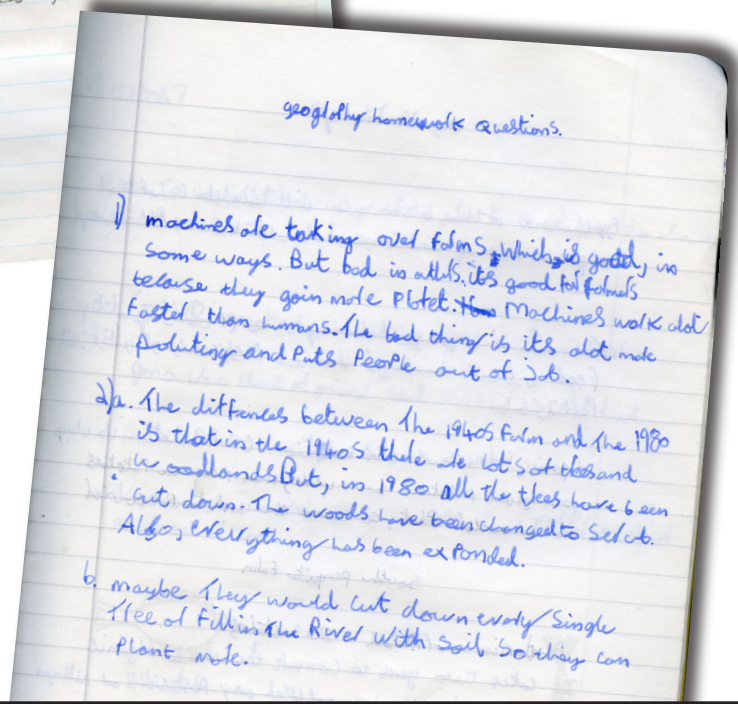 geography homework Questions.
1) machines are taking over farms, which is good, in
some ways. But bad in others. its good for farmers
because they gain more Plofet. Machines work alot
faster than humans. The bad thing is its alot more
Poluting and Puts People out of Job.
2)a. The diffrences between The 1940s Farm and The 1980
is that in the 1940s there are lots of trees and
woodlands But, in 1980 all the trees have been
cut down. The woods have been changed to Scrub.
Also, everything has been exPanded.
b. maybe They would cut down every Single
Tree or Fill in The River with Soil So they can
Plant more.